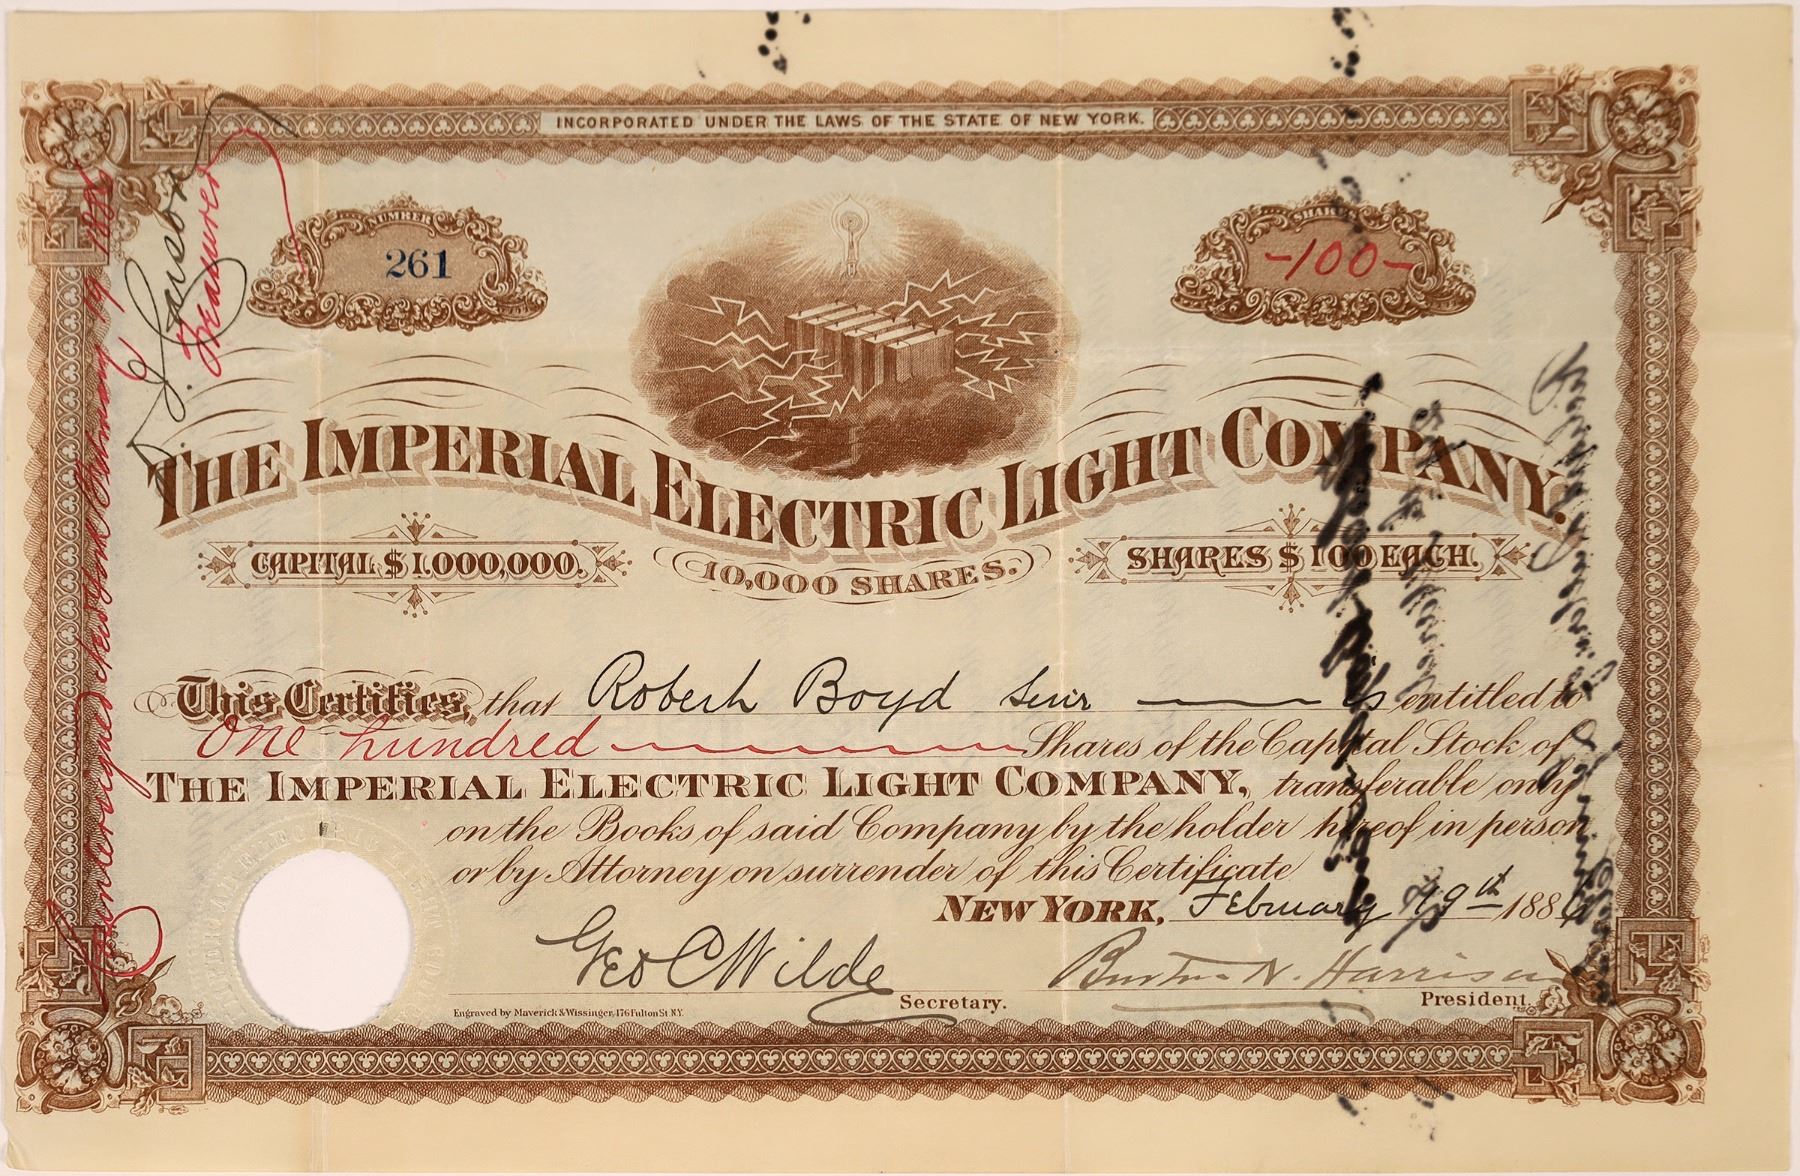 INCORPORATED UNDER THE LAWS OF THE STATE OF NEW YORK.
NUMBER
261
SHARES
-100-
THE IMPERIAL ELECTRIC LIGHT COMPANY.
CAPITAL $1,000,000.
10,000 SHARES.
SHARES $100 EACH.
This Certifies, that Robert Boyd Senr is entitled to
One hundred Shares of the Capital Stock of
THE IMPERIAL ELECTRIC LIGHT COMPANY, transferable only
on the Books of said Company by the holder hereof in person
or by Attorney on surrender of this Certificate
NEW YORK, February 19th 1886
Geo C Wilde
Secretary.
Burton N. Harrison
President.
Engraved by Maverick & Wissinger, 176 Fulton St. N.Y.
Treasurer